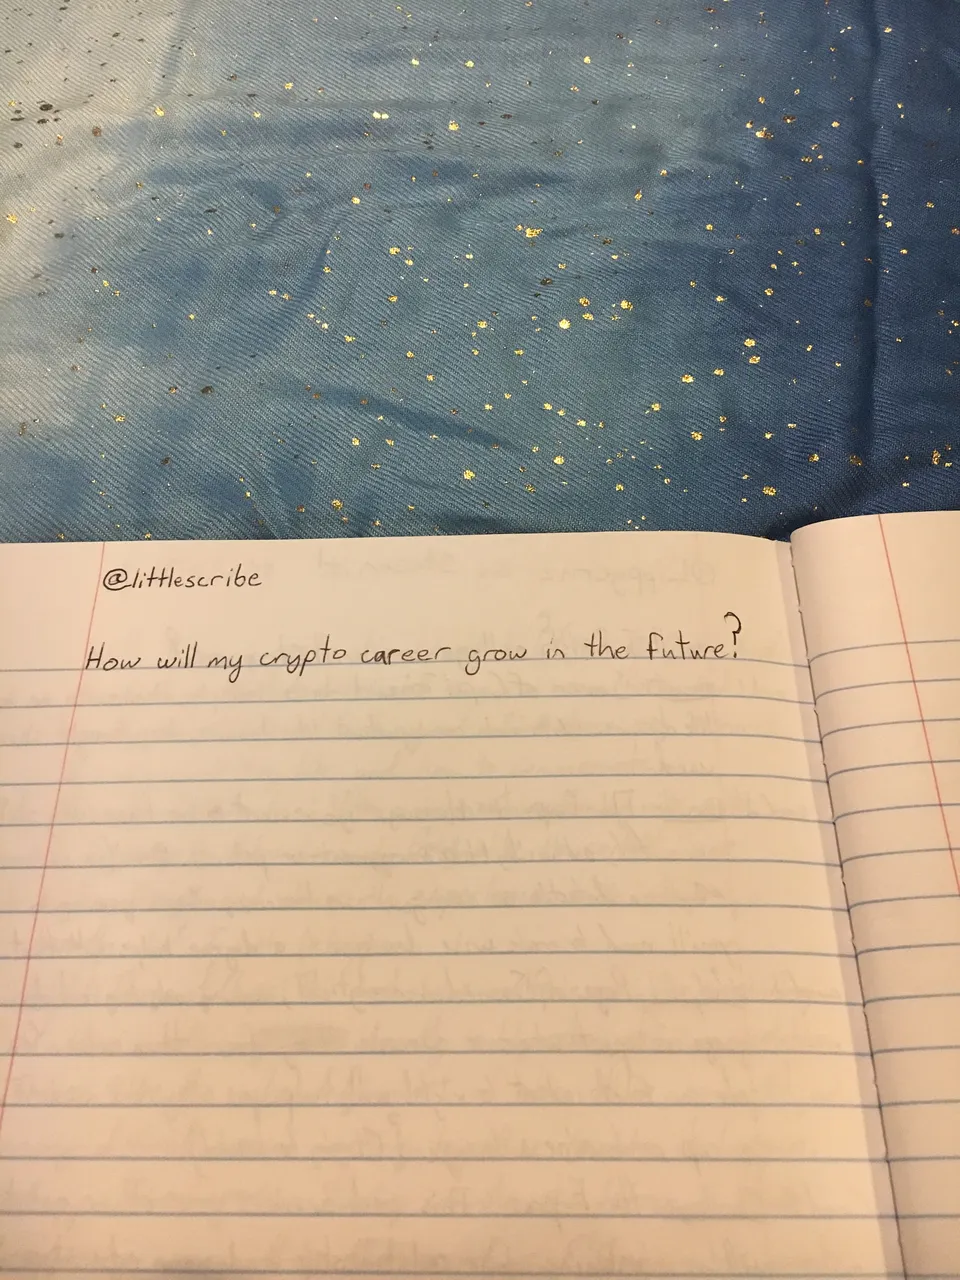 @littlescribe
How will my crypto career grow in the future?